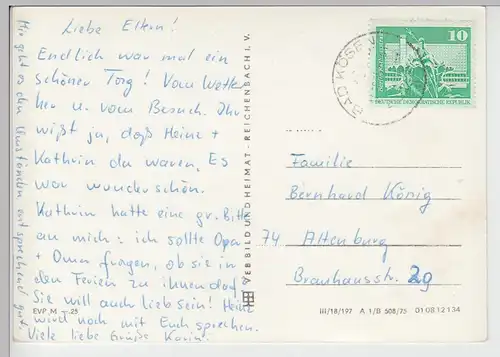 Liebe Eltern!
Endlich war mal ein
schöner Tag! Vom Wetter
her u. vom Besuch. Ihr
wißt ja, daß Heinz +
Kathrin da waren. Es
war wunderschön.
Kathrin hatte eine gr. Bitte
an mich: ich sollte Opa
+ Oma fragen, ob sie in
den Ferien zu ihnen darf.
Sie will auch lieb sein! Heinz
wird noch mit Euch sprechen.
Viele liebe Grüße Karin.
Mir geht es den Umständen entsprechend gut.
EVP M -,25
VEB BILD UND HEIMAT · REICHENBACH i. V.
BAD KÖSEN
10
DEUTSCHE DEMOKRATISCHE REPUBLIK
Familie
Bernhard König
74 Altenburg
Brauhausstr. 29
III/18/197 A 1/B 508/75 01 08 12 134